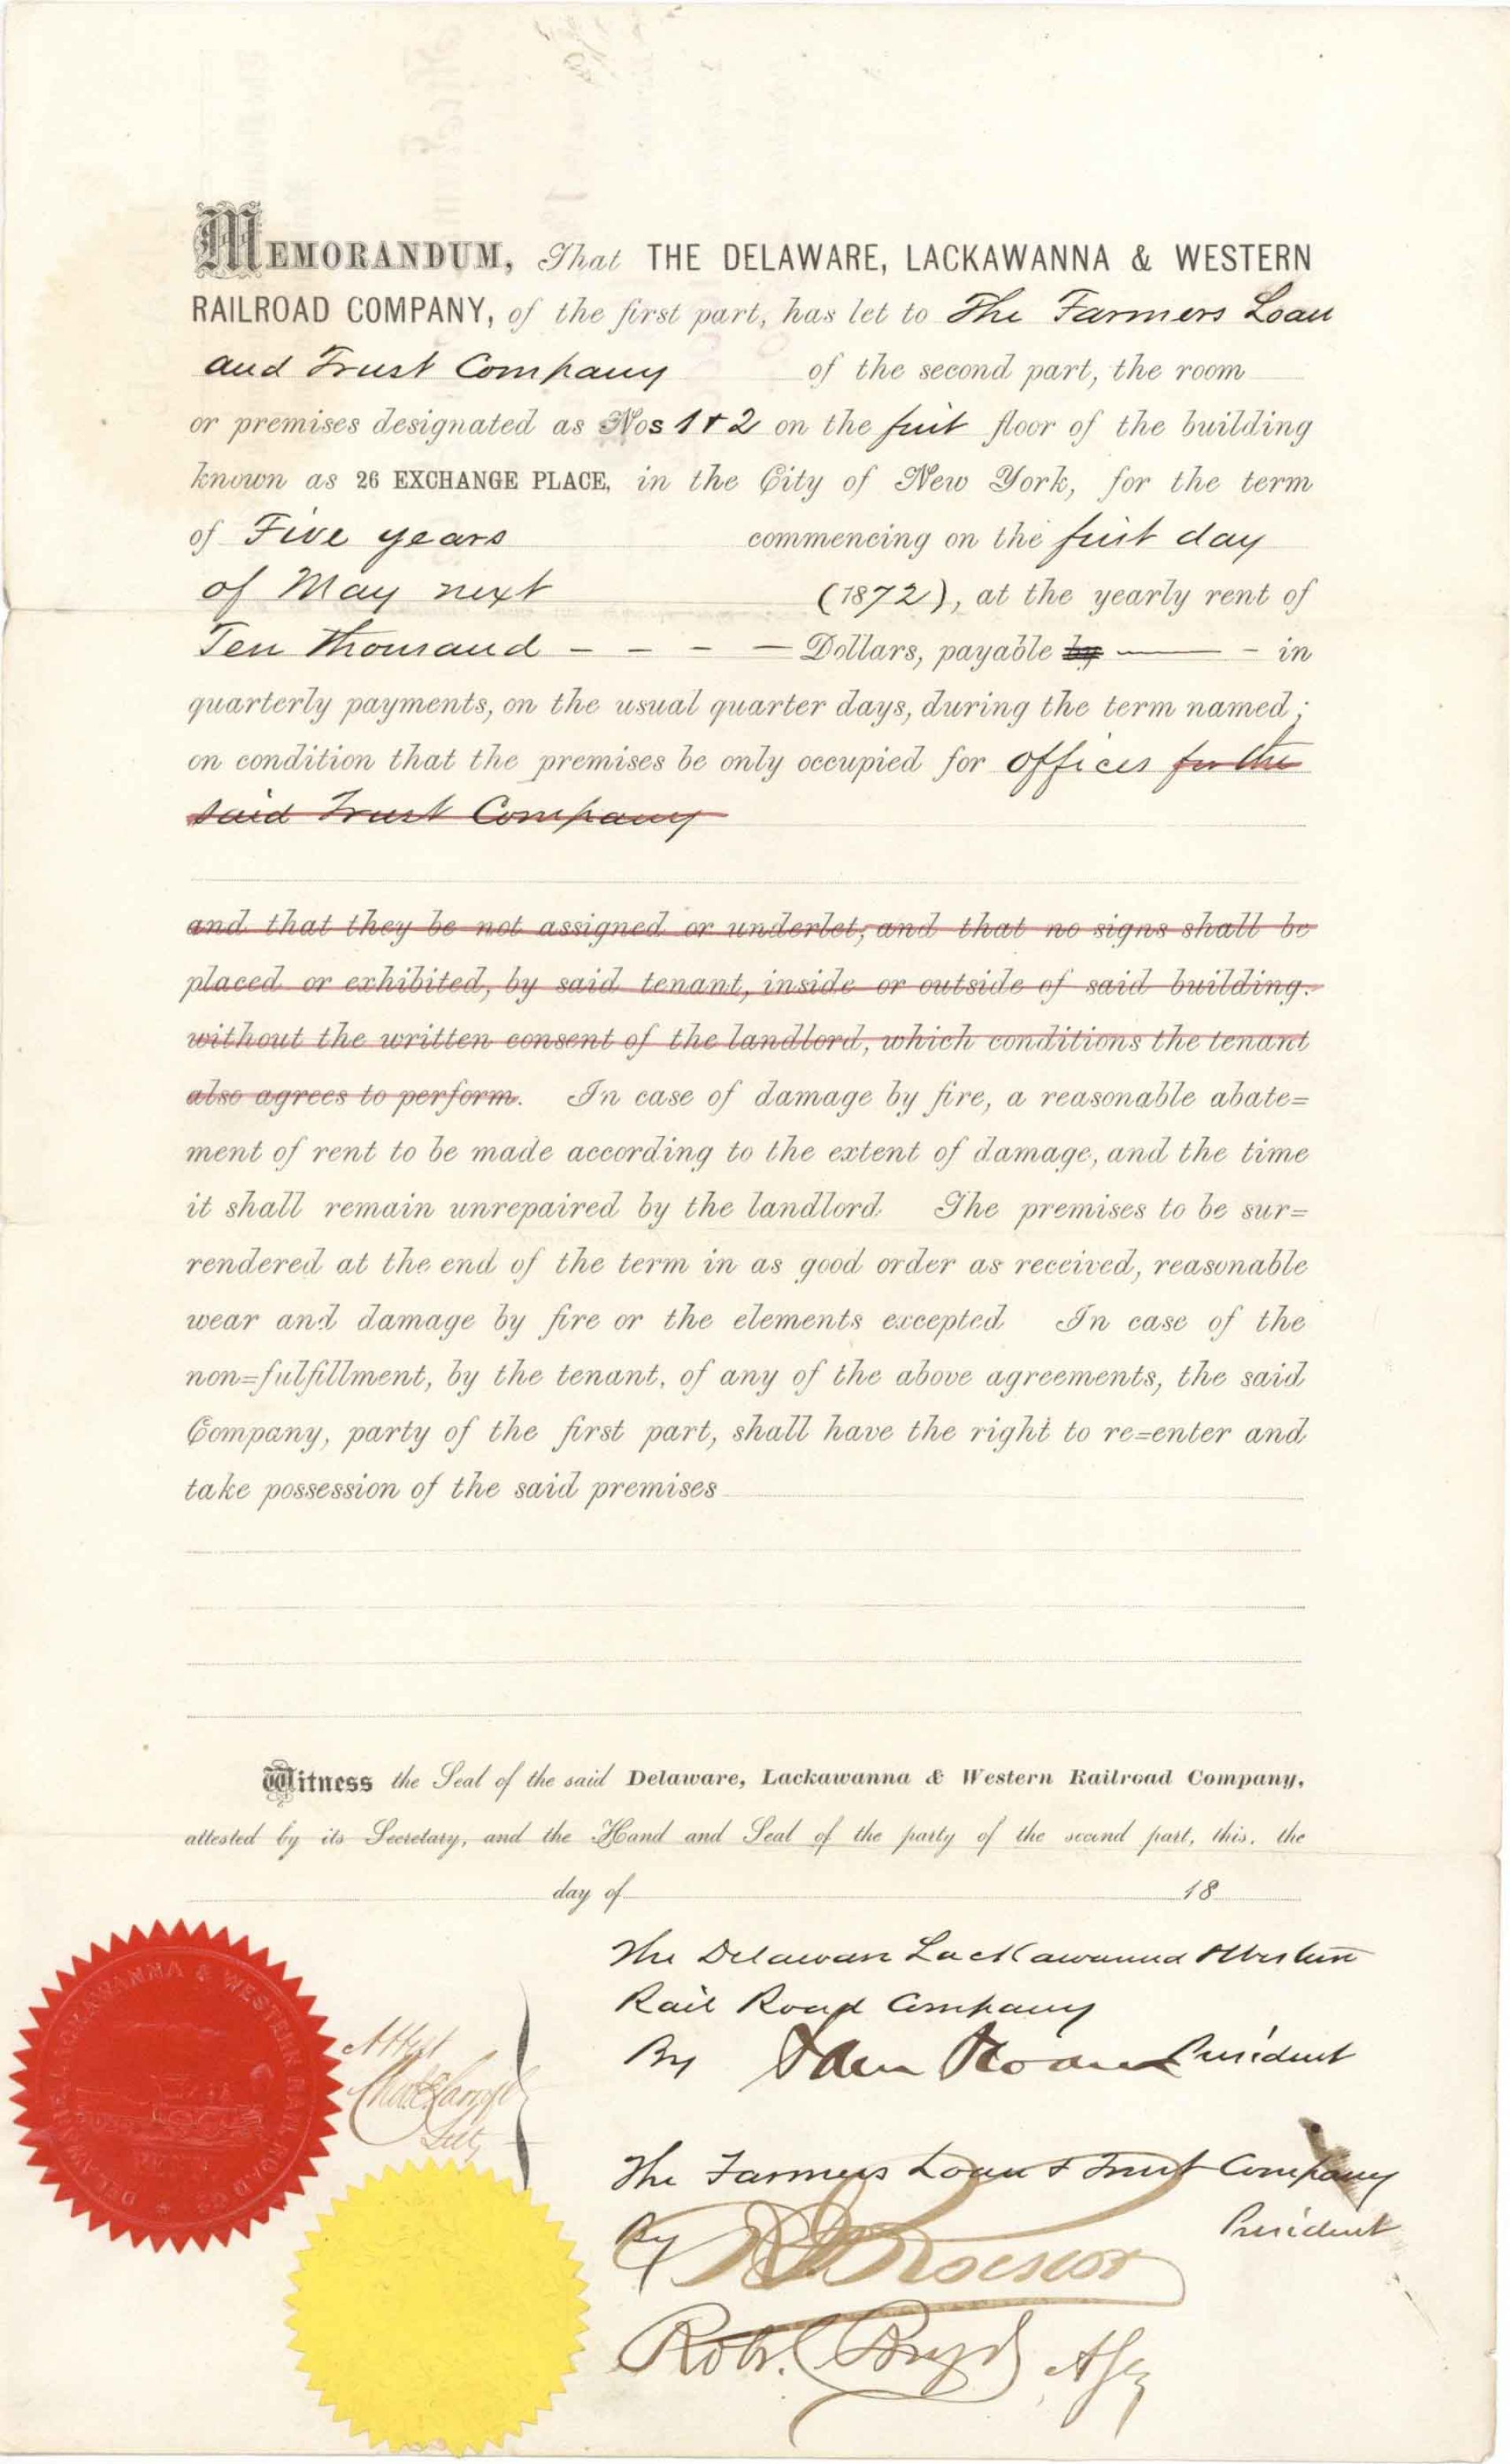 MEMORANDUM, That THE DELAWARE, LACKAWANNA & WESTERN
RAILROAD COMPANY, of the first part, has let to The Farmers Loan
and Trust Company of the second part, the room
or premises designated as Nos 1 & 2 on the first floor of the building
known as 26 EXCHANGE PLACE, in the City of New York, for the term
of Five years commencing on the first day
of May next (1872), at the yearly rent of
Ten Thousand - - - - Dollars, payable by - in
quarterly payments, on the usual quarter days, during the term named;
on condition that the premises be only occupied for offices for the
said Trust Company
and that they be not assigned or underlet, and that no signs shall be
placed or exhibited, by said tenant, inside or outside of said building.
without the written consent of the landlord, which conditions the tenant
also agrees to perform. In case of damage by fire, a reasonable abate=
ment of rent to be made according to the extent of damage, and the time
it shall remain unrepaired by the landlord The premises to be sur=
rendered at the end of the term in as good order as received, reasonable
wear and damage by fire or the elements excepted In case of the
non=fulfillment, by the tenant, of any of the above agreements, the said
Company, party of the first part, shall have the right to re=enter and
take possession of the said premises
Witness the Seal of the said Delaware, Lackawanna & Western Railroad Company,
attested by its Secretary, and the Hand and Seal of the party of the second part, this, the
day of 18
The Delaware Lackawanna & Western
Rail Road Company
By Sam Sloan President
Attest
The Farmers Loan & Trust Company
By President
DELAWARE LACKAWANNA & WESTERN RAIL ROAD CO.